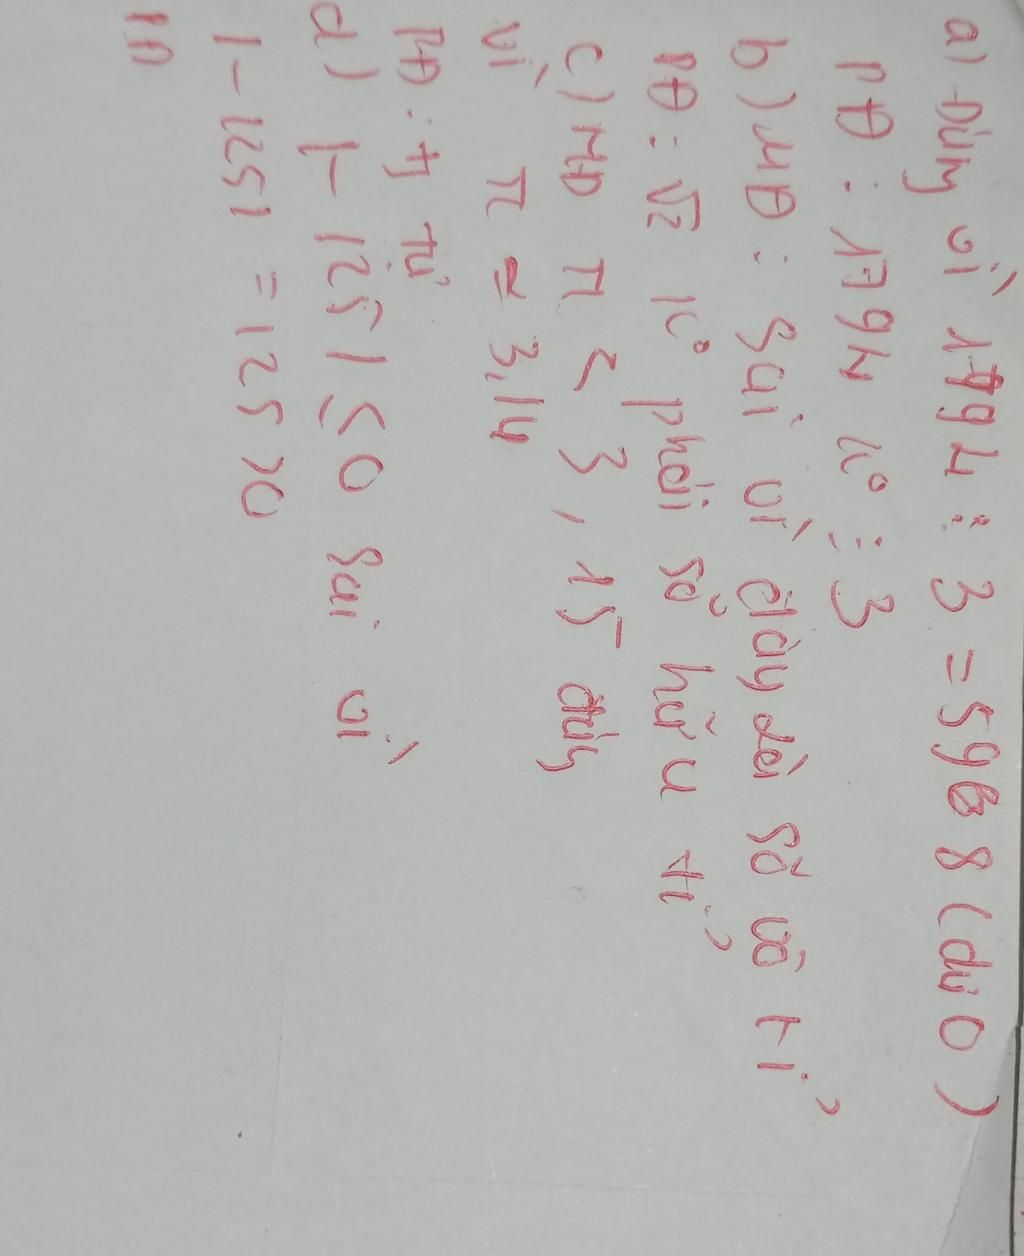 a) Đúng vì 1794 ⋮ 3 = 598 (dư 0)
PĐ : 1794 k° ⋮ 3
b) MĐ : Sai vì đây là số vô tỉ
PĐ : √2 k° phải số hữu tỉ
c) MĐ π < 3,15 đúng
vì π ≈ 3,14
PĐ : tự
d) |-125| ≤ 0 sai vì
|-125| = 125 > 0
PĐ